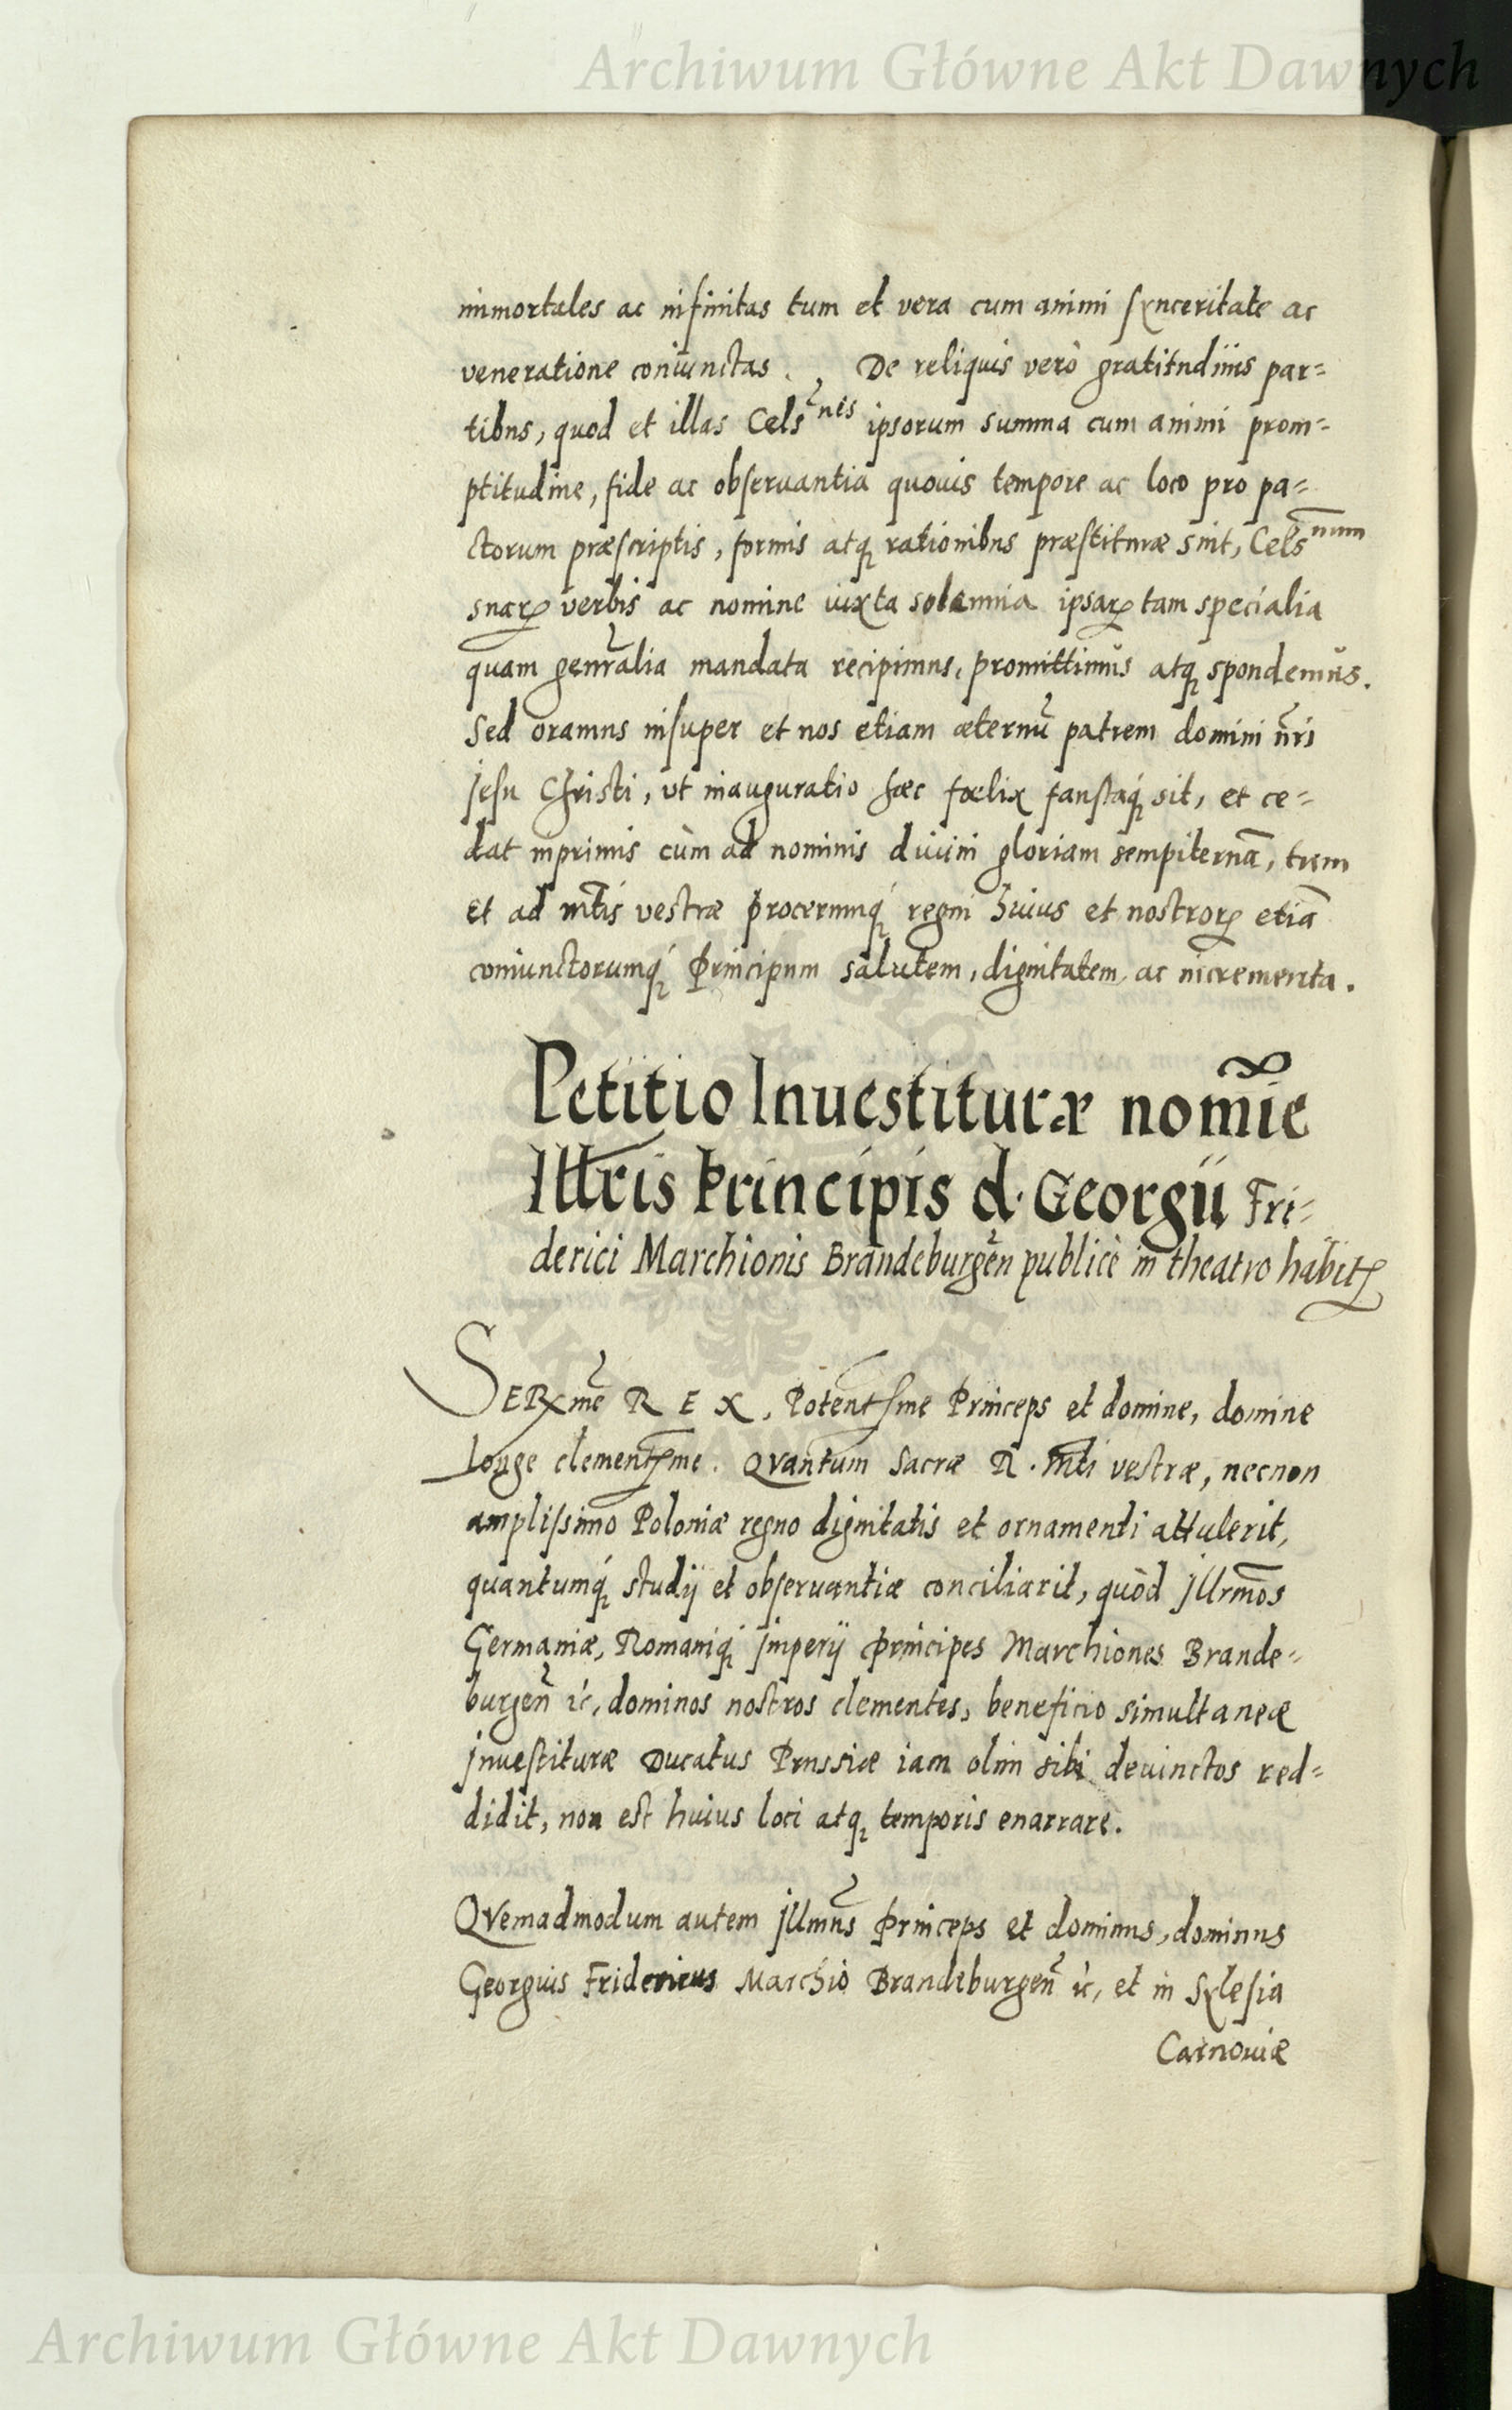 Archiwum Główne Akt Dawnych
immortales ac infinitas tum et vera cum animi synceritate ac
veneratione coniunctas. De reliquis verò gratitudinis par=
tibus, quod et illas Cels^nes ipsorum summa cum animi prom=
ptitudine, fide ac obseruantia quouis tempore ac loco pro pa=
ctorum præscriptis, formis atq; rationibus præstituræ sint, Cels^num
suarꝝ verbis ac nomine iuxta solemnia ipsarꝝ tam specialia
quam genralia mandata recipimus, promittimus atq; spondemus.
Sed oramus insuper et nos etiam æternū patrem domini nr̄i
Jesu Christi, vt inauguratio hæc fœlix faustaq́; sit, et ce=
dat inprimis cùm ad nominis diuini gloriam sempiternā, tum
et ad mt̄is vestræ procerumq́; regni huius et nostrorꝝ etiā
coniunctorumq́; Principum salutem, dignitatem ac incrementa.
Petitio Inuestituræ nomīe
Illr̄is Principis d. Georgii Fri=
derici Marchionis Brandeburgen̄ publicè in theatro habitꝝ
SERxmē REX, Potentsme Princeps et domine, domine
longe clementsme. QVantum Sacræ R. Mt̄i vestræ, necnon
amplissimo Poloniæ regno dignitatis et ornamenti attulerit,
quantumq́; studij et obseruantiæ conciliarit, quòd Jllrmōs
Germaniæ, Romaniq́; Jmperij Principes Marchiones Brande=
burgen̄ ꝛc, dominos nostros clementes, beneficio simultaneæ
Jnuestituræ Ducatus Prussiæ iam olim sibi deuinctos red=
didit, non est huius loci atq; temporis enarrare.
QVemadmodum autem Jllmūs Princeps et dominus, dominus
Georgius Fridericus Marchio Brandeburgen̄ ꝛc, et in Sylesia
Carnouiæ
Archiwum Główne Akt Dawnych